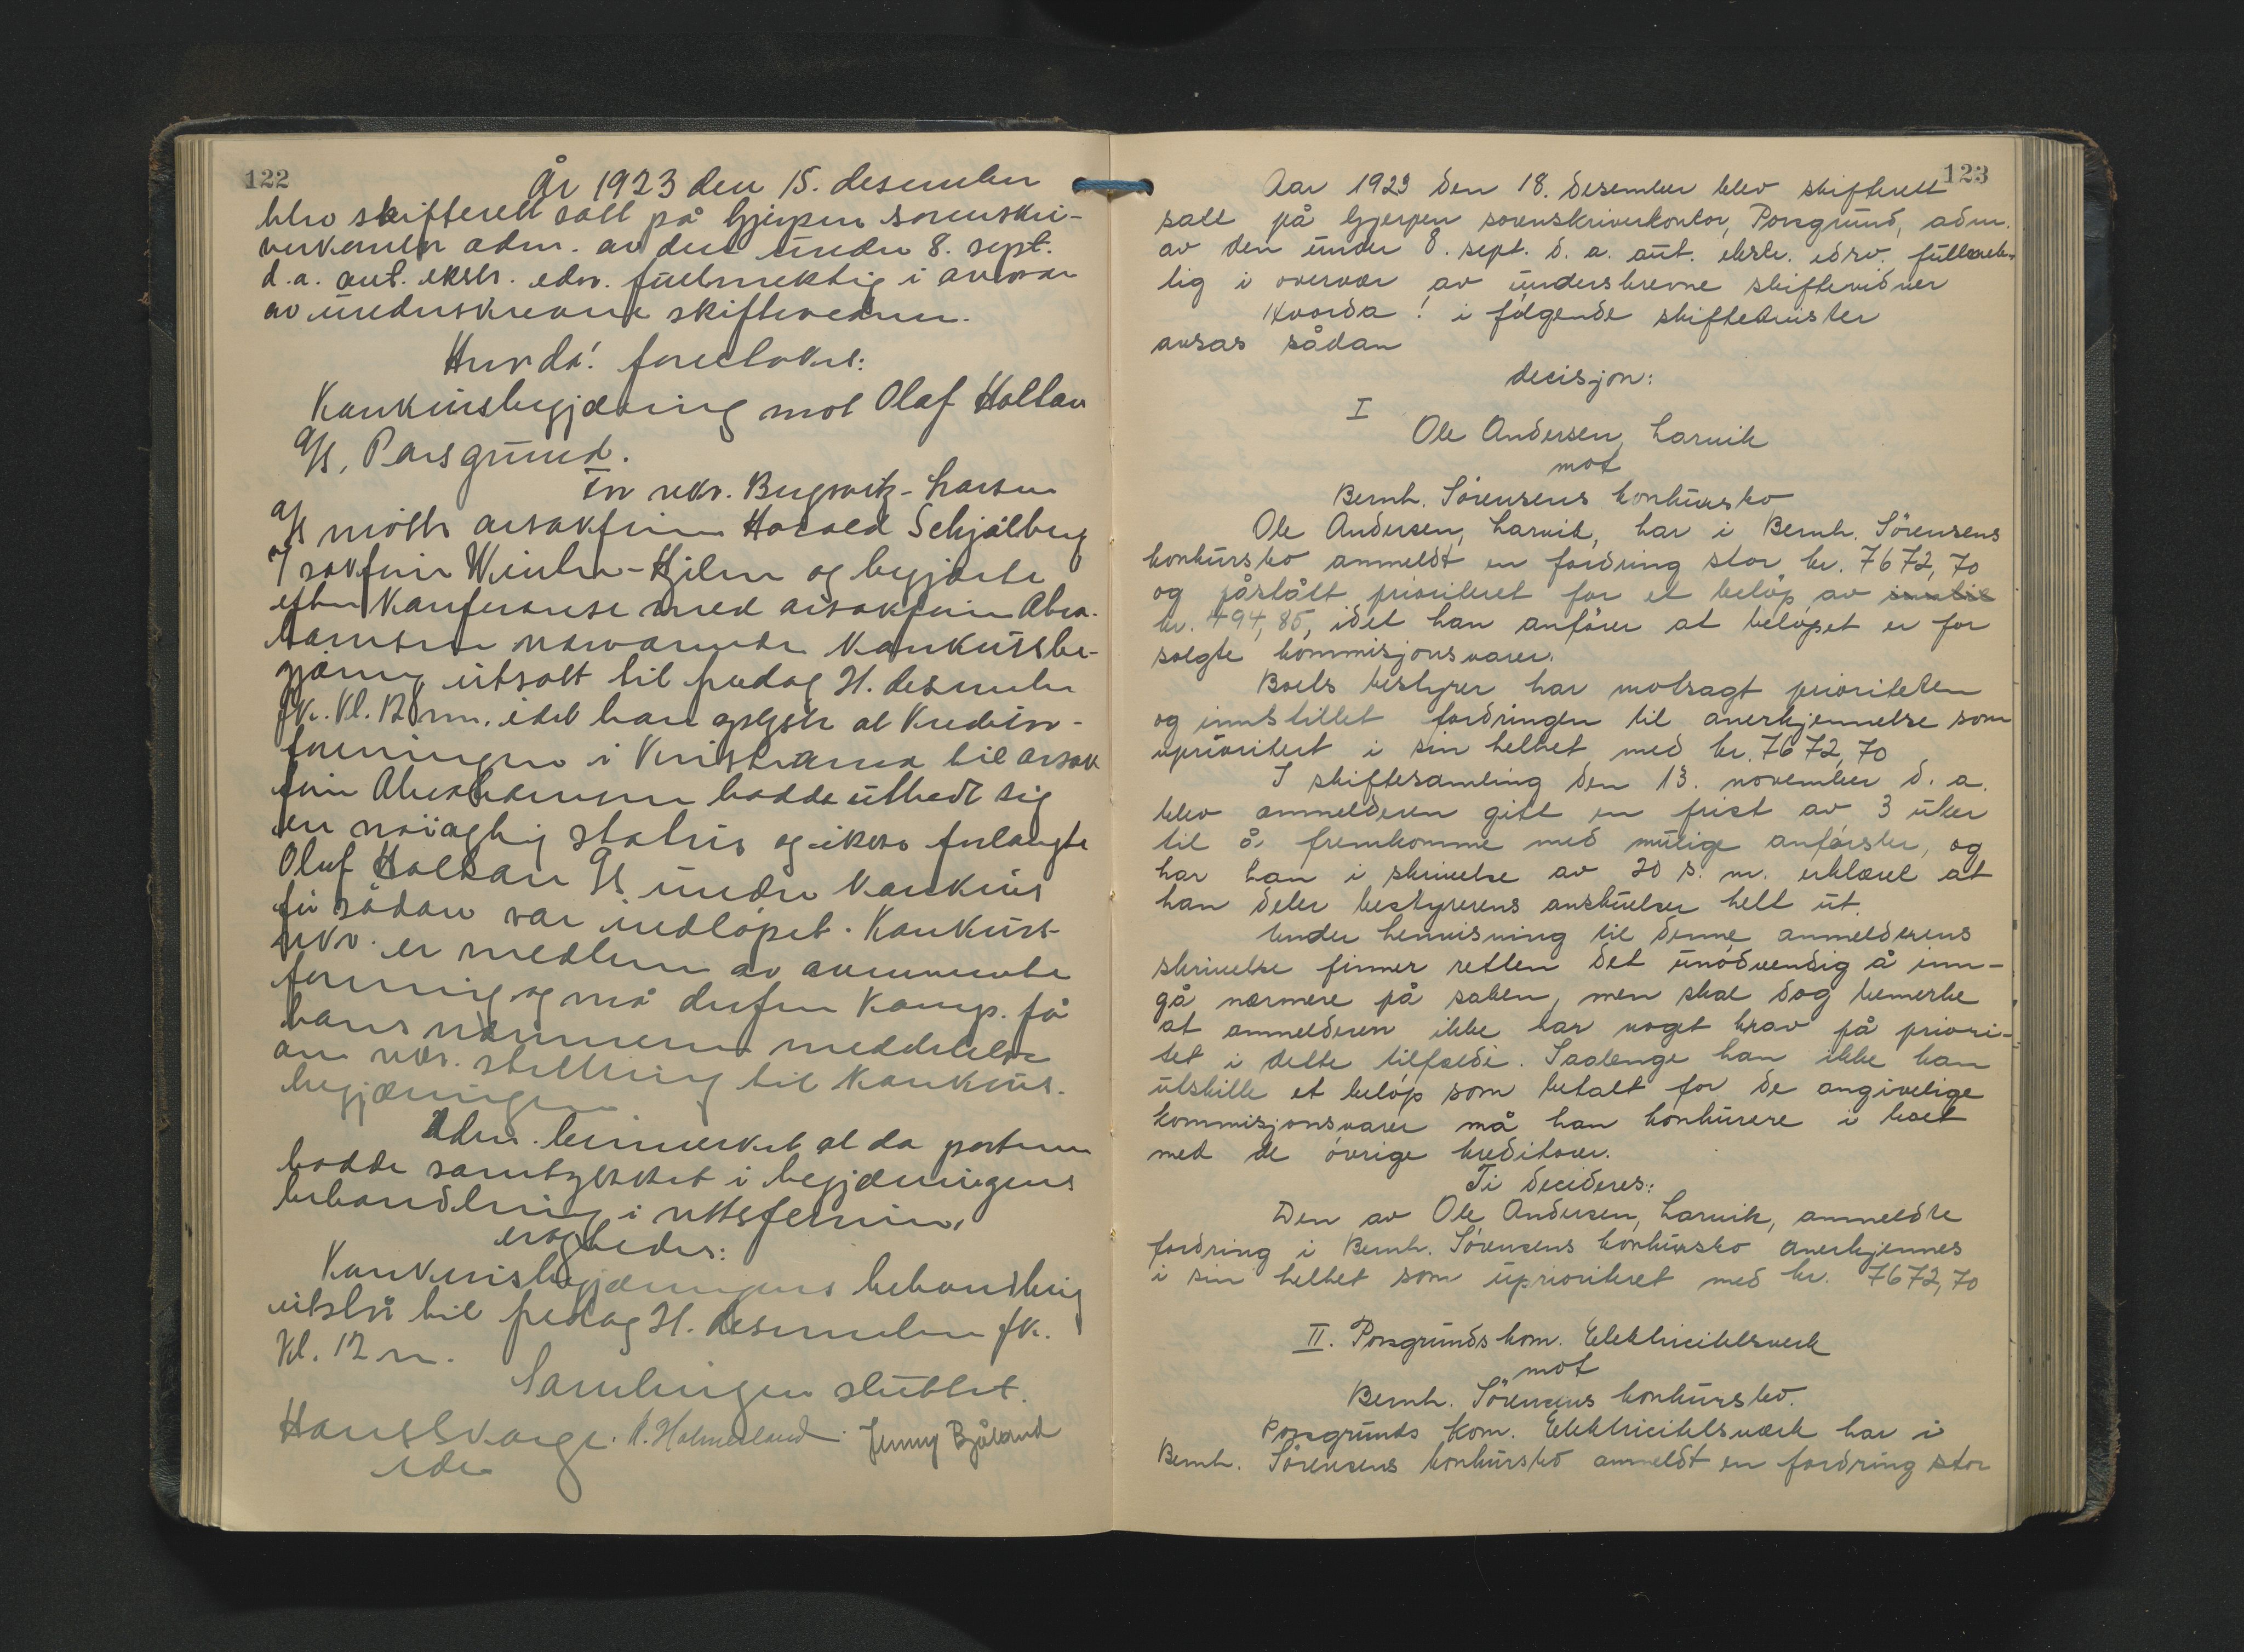 122
År 1923 den 15. desember
blev skifterett satt på Gjerpen sorenskri-
verkontor adm. av den under 8. sept.
d.a. aut. ekstr. edsv. fullmektig i overvær
av underskrevne skiftevidner.
Hvorda! foretokes:
Konkursbegjæring mot Olaf Holtan
A/S, Porsgrund.
For rekv. Bugowitz-Larsen
A/S møtte o.r.sakfører Harald Schjølberg
og sakfører Winther-Hjelm og begjærte
efter konferanse med o.r.sakfører Abra-
hamsen nærværende konkursbe-
gjæring utsatt til fredag 21. desember
fk. kl. 12 m. idet han oplyste at Kreditor-
foreningen i Kristiania til o.r.sak
fører Abrahamsen hadde utbedt sig
en nøiagtig status og ikke forlangte
Oluf Holtan A/S under konkurs
før sådan var innløpet. Konkurs-
rekv. er medlem av ovennevnte
forening og må derfor komp. få
hans nærmere meddelelse
om rekv. stilling til konkurs-
begjæringen.
Adm. bemerket at da partene
hadde samtykket i begjæringens
behandling i rettsferien,
eragtedes:
Konkursbegjæringens behandling
utstår til fredag 21. desember fk.
kl. 12 m.
Samlingen sluttet.
Hans Skauge. A. Holmesland. Jenny Bjåland
edsv
123
Aar 1923 den 18. desember blev skifterett
satt på Gjerpen sorenskriverkontor, Porsgrund, adm.
av den under 8. sept. d. a. aut. ekstr. edsv. fullmek-
tig i overvær av underskrevne skiftevidner
Hvorda! i følgende skiftetvister
avsas sådan
decisjon:
I
Ole Andersen, Larvik
mot
Bernh. Sørensens konkursbo
Ole Andersen, Larvik, har i Bernh. Sørensens
konkursbo anmeldt en fordring stor kr. 7672,70
og påstått prioritet for et beløp av
kr. 494,85, idet han anfører at beløpet er for
solgte kommisjonsvarer.
Boets bestyrer har motsagt prioriteten
og innstillet fordringen til anerkjennelse som
uprioritert i sin helhet med kr. 7672,70
I skiftesamling den 13. november d. a.
blev anmelderen gitt en frist av 3 uker
til å fremkomme med mulige anførsler, og
har han i skrivelse av 20 s. m. erklæret at
han deler bestyrerens anskuelser helt ut.
Under henvisning til denne anmelderens
skrivelse finner retten det unødvendig å inn-
gå nærmere på saken, men skal dog bemerke
at anmelderen ikke har noget krav på priori-
tet i dette tilfælde. Saalenge han ikke kan
utskille et beløp som betalt for de angivelige
kommisjonsvarer må han konkurere i boet
med de øvrige kreditorer.
Ti decideres:
Den av Ole Andersen, Larvik, anmeldte
fordring i Bernh. Sørensens konkursbo anerkjennes
i sin helhet som uprioriteret med kr. 7672,70
II. Porsgrunds kom. Elektricitetsverk
mot
Bernh. Sørensens konkursbo.
Porsgrunds kom. Elektricitetsværk har i
Bernh. Sørensens konkursbo anmeldt en fordring stor